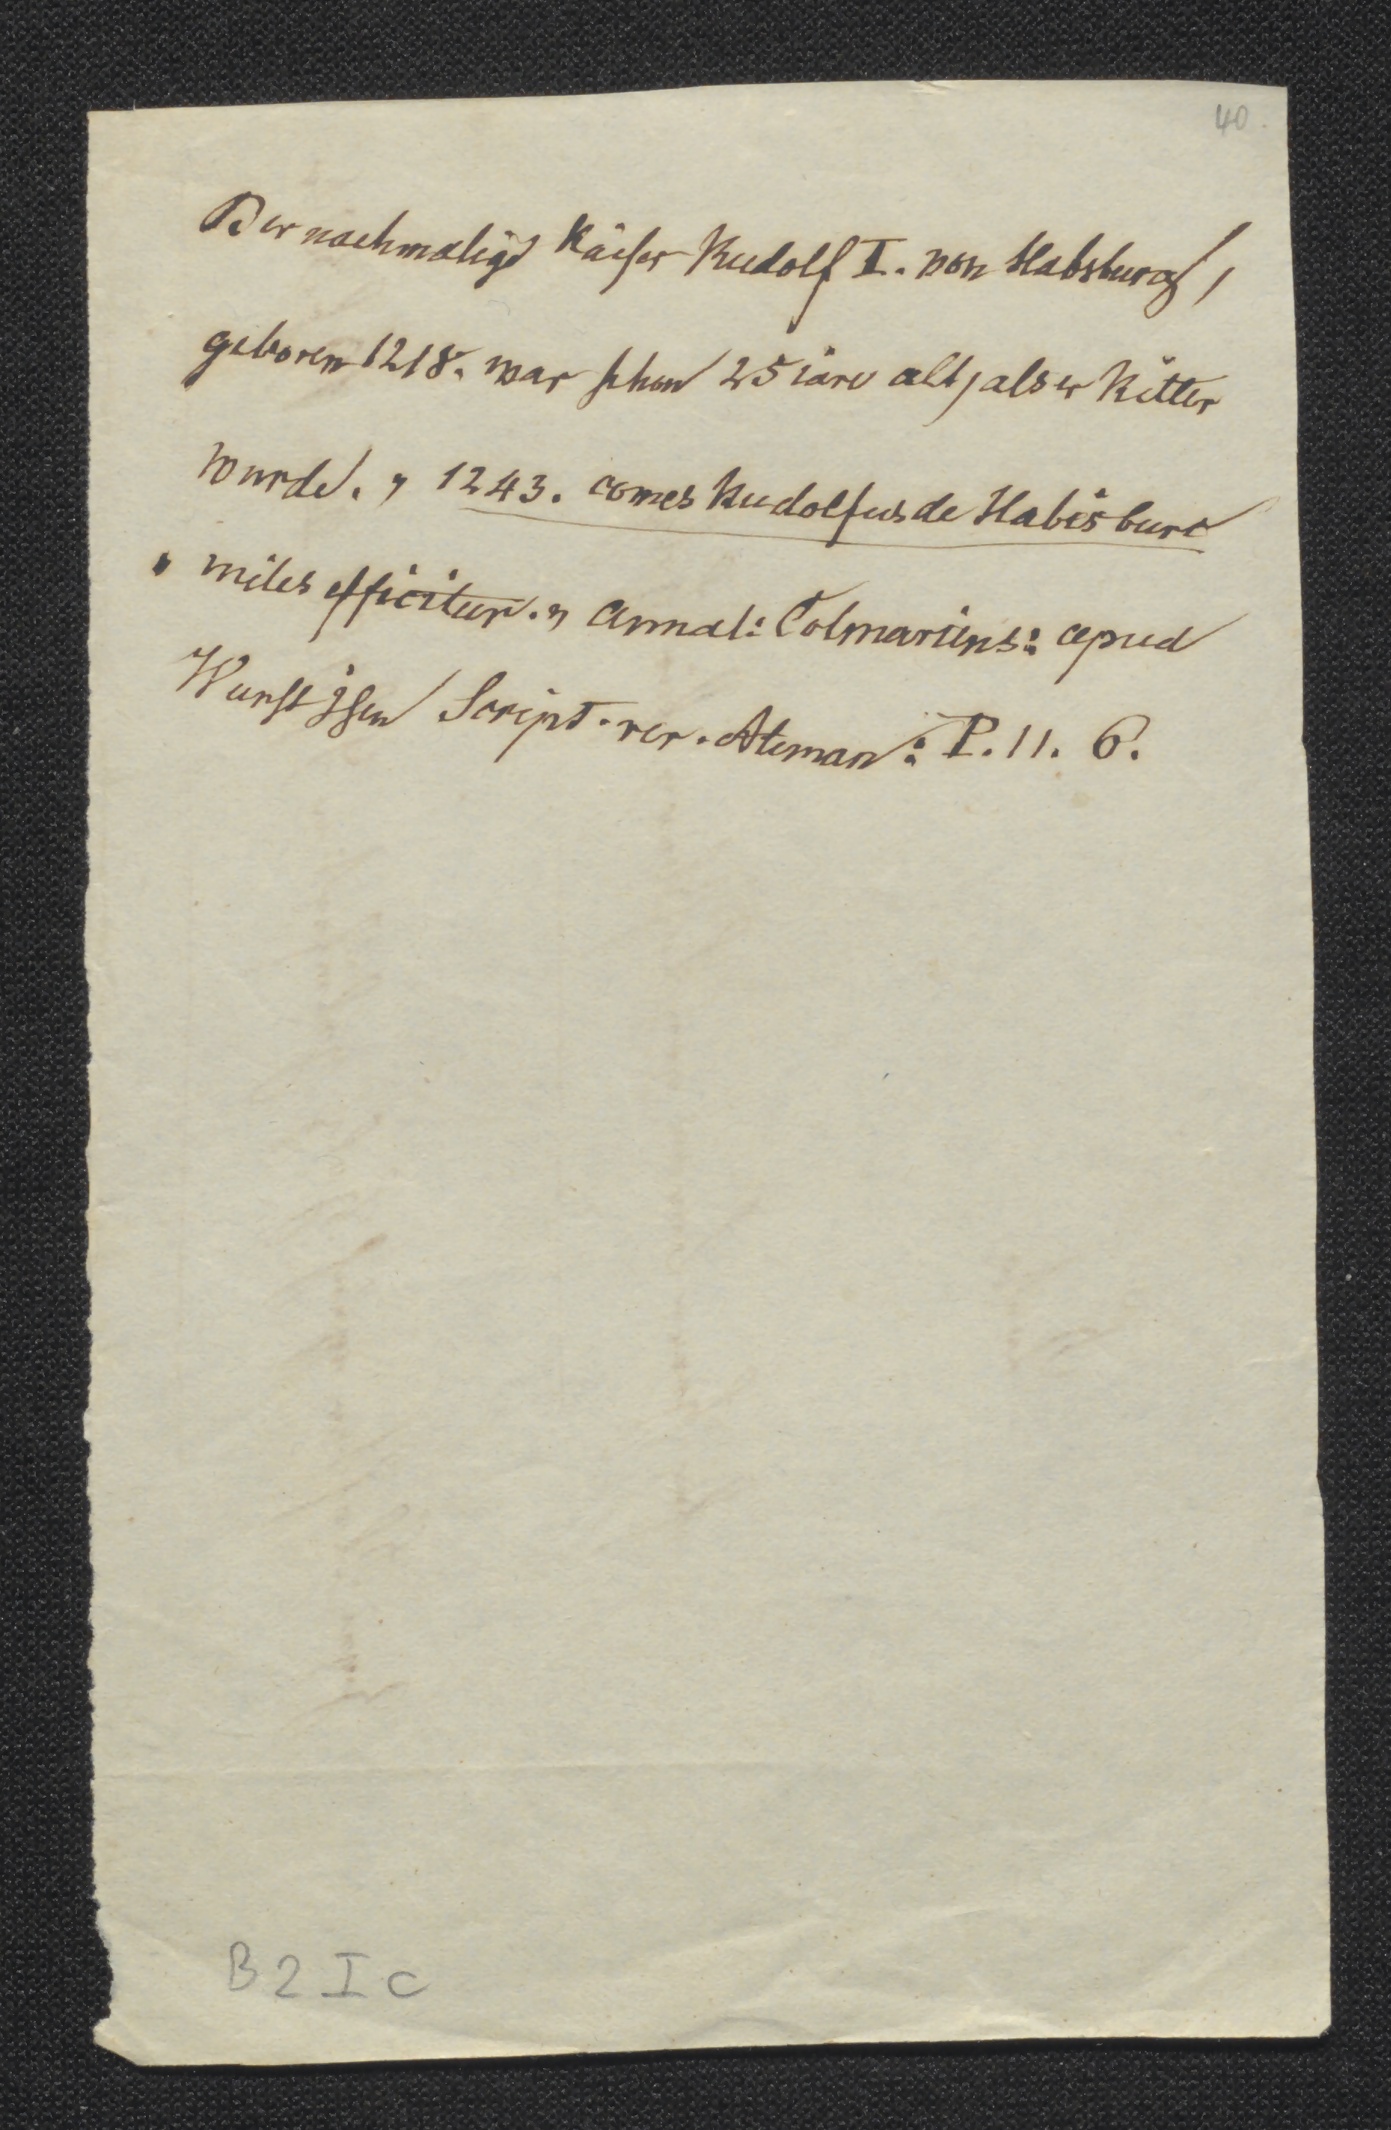 40.
Der nachmalige Kaiser Rudolf I. von Habsburg,
geboren 1218. war schon 25 iare alt, als er Ritter
wurde. „ 1243. comes Rudolfus de Habisburc
„ miles efficitur. „ Annal: Colmariens: apud
Wurstisen Script. rer. Aleman: P. 11. 6.
B 2 I c